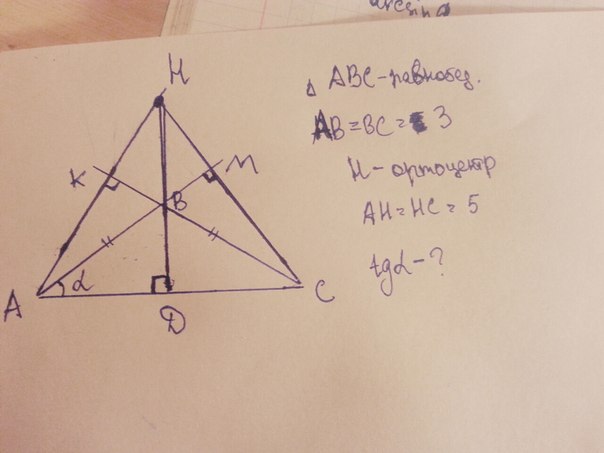 arcsin a
H
K
M
B
A
α
D
C
Δ ABC-равнобед.
AB=BC= 3
H- ортоцентр
AH=HC=5
tgα-?